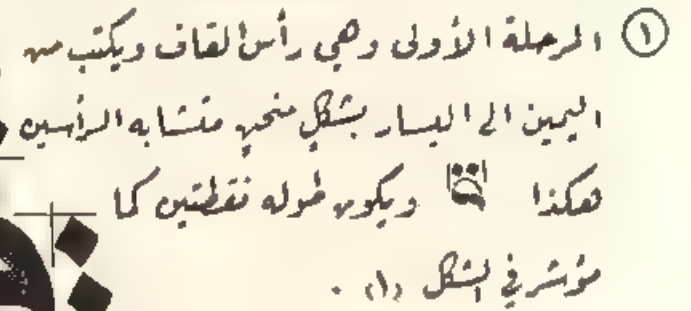 ① المرحلة الأولى وهي رأس القاف ويكتب من
اليمين الى اليسار بشكل منحنٍ متشابه الرأسين
هكذا ويكون طوله نقطتين كما
مؤشر في الشكل (١) .